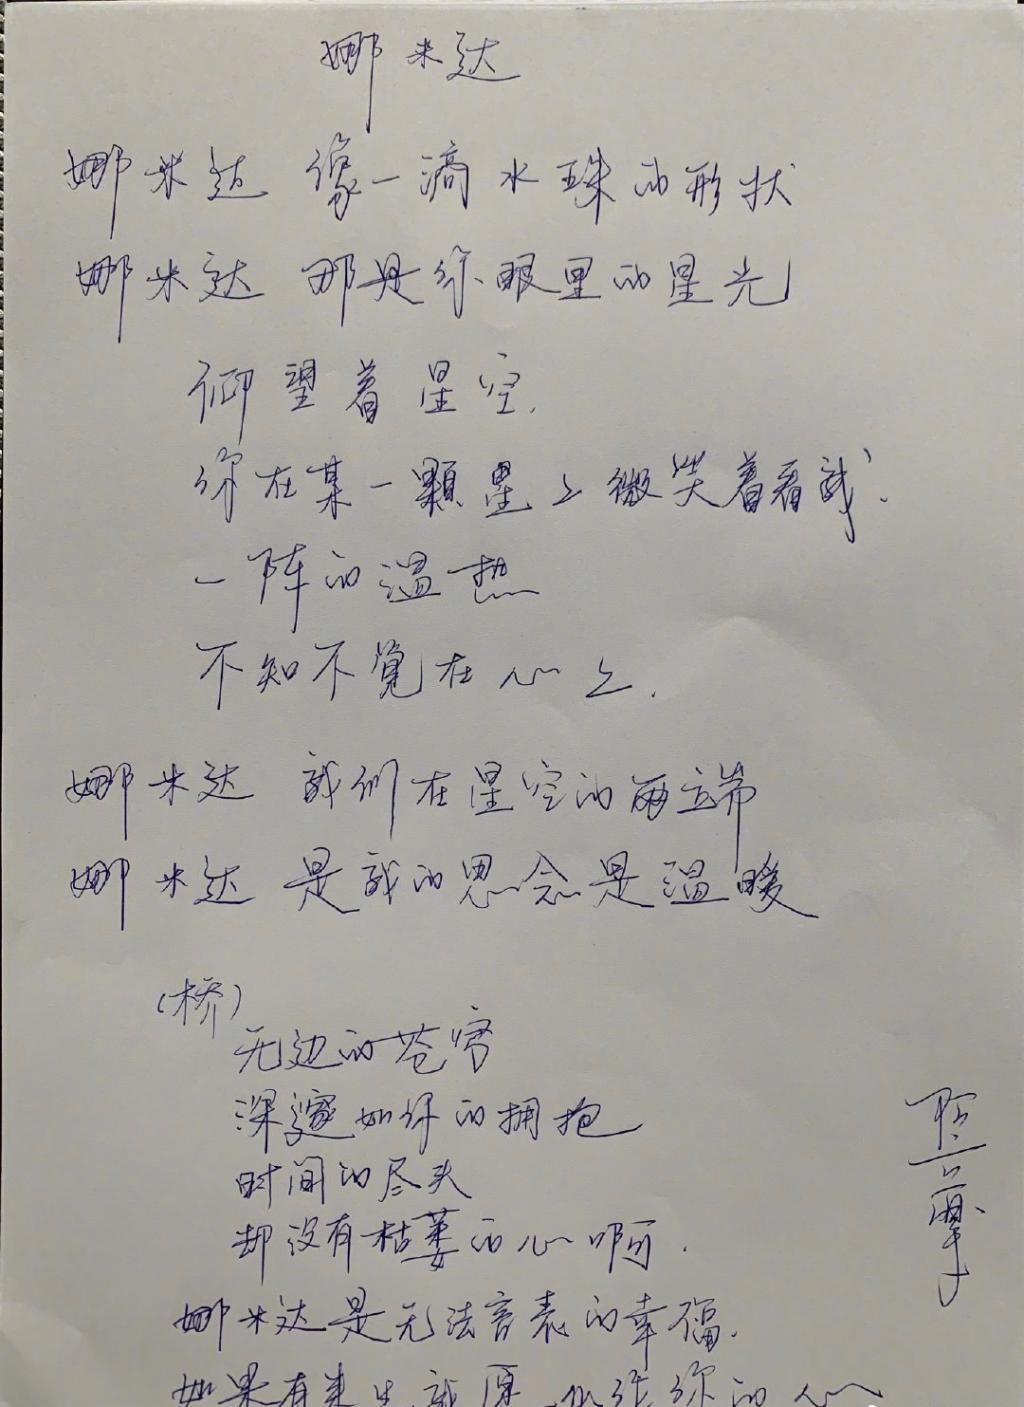 娜米达
娜米达 像一滴水珠的形状
娜米达 那是你眼里的星光
仰望着星空.
你在某一颗星上微笑着看我.
一阵的温热
不知不觉在心上.
娜米达 我们在星空的两端
娜米达 是我的思念是温暖
(桥)
无边的苍穹
深邃如你的拥抱
时间的尽头
却没有枯萎的心啊.
娜米达是无法言表的幸福.
如果有来生我愿 你的心